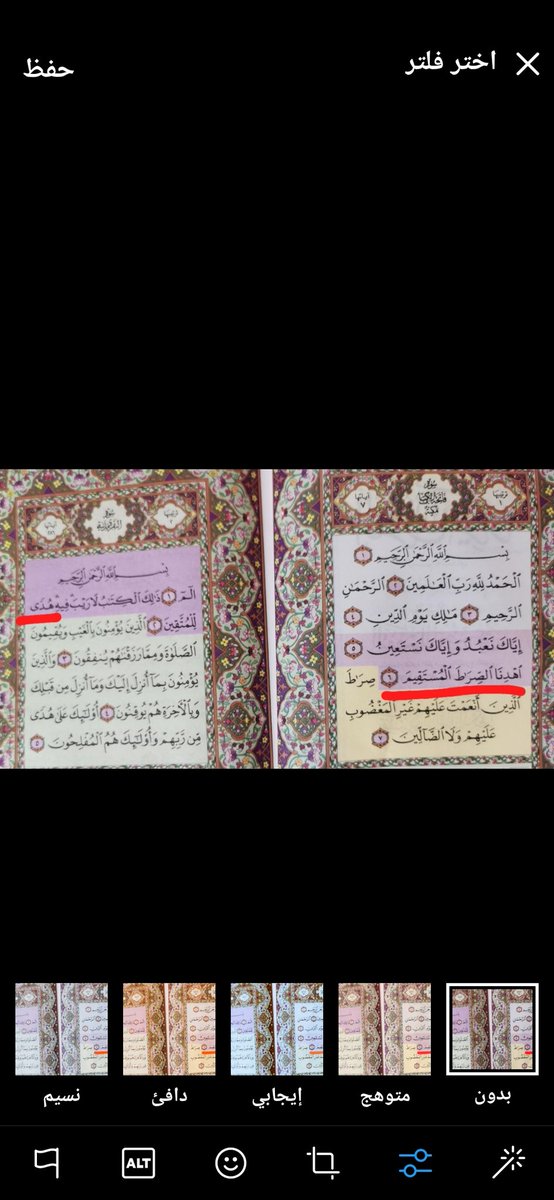 اختر فلتر
حفظ
سورة فاتحة الكتاب
بِسْمِ ٱللَّهِ ٱلرَّحْمَٰنِ ٱلرَّحِيمِ ١
ٱلْحَمْدُ لِلَّهِ رَبِّ ٱلْعَٰلَمِينَ ٢ ٱلرَّحْمَٰنِ
ٱلرَّحِيمِ ٣ مَٰلِكِ يَوْمِ ٱلدِّينِ ٤
إِيَّاكَ نَعْبُدُ وَإِيَّاكَ نَسْتَعِينُ ٥
ٱهْدِنَا ٱلصِّرَٰطَ ٱلْمُسْتَقِيمَ ٦ صِرَٰطَ
ٱلَّذِينَ أَنْعَمْتَ عَلَيْهِمْ غَيْرِ ٱلْمَغْضُوبِ
عَلَيْهِمْ وَلَا ٱلضَّآلِّينَ ٧
سورة البقرة
بِسْمِ ٱللَّهِ ٱلرَّحْمَٰنِ ٱلرَّحِيمِ
الٓمٓ ١ ذَٰلِكَ ٱلْكِتَٰبُ لَا رَيْبَ فِيهِ هُدًى
لِّلْمُتَّقِينَ ٢ ٱلَّذِينَ يُؤْمِنُونَ بِٱلْغَيْبِ وَيُقِيمُونَ
ٱلصَّلَوٰةَ وَمِمَّا رَزَقْنَٰهُمْ يُنفِقُونَ ٣ وَٱلَّذِينَ
يُؤْمِنُونَ بِمَآ أُنزِلَ إِلَيْكَ وَمَآ أُنزِلَ مِن قَبْلِكَ
وَبِٱلْءَاخِرَةِ هُمْ يُوقِنُونَ ٤ أُو۟لَٰٓئِكَ عَلَىٰ هُدًى
مِّن رَّبِّهِمْ وَأُو۟لَٰٓئِكَ هُمُ ٱلْمُفْلِحُونَ ٥
بدون
متوهج
إيجابي
دافئ
نسيم
ALT